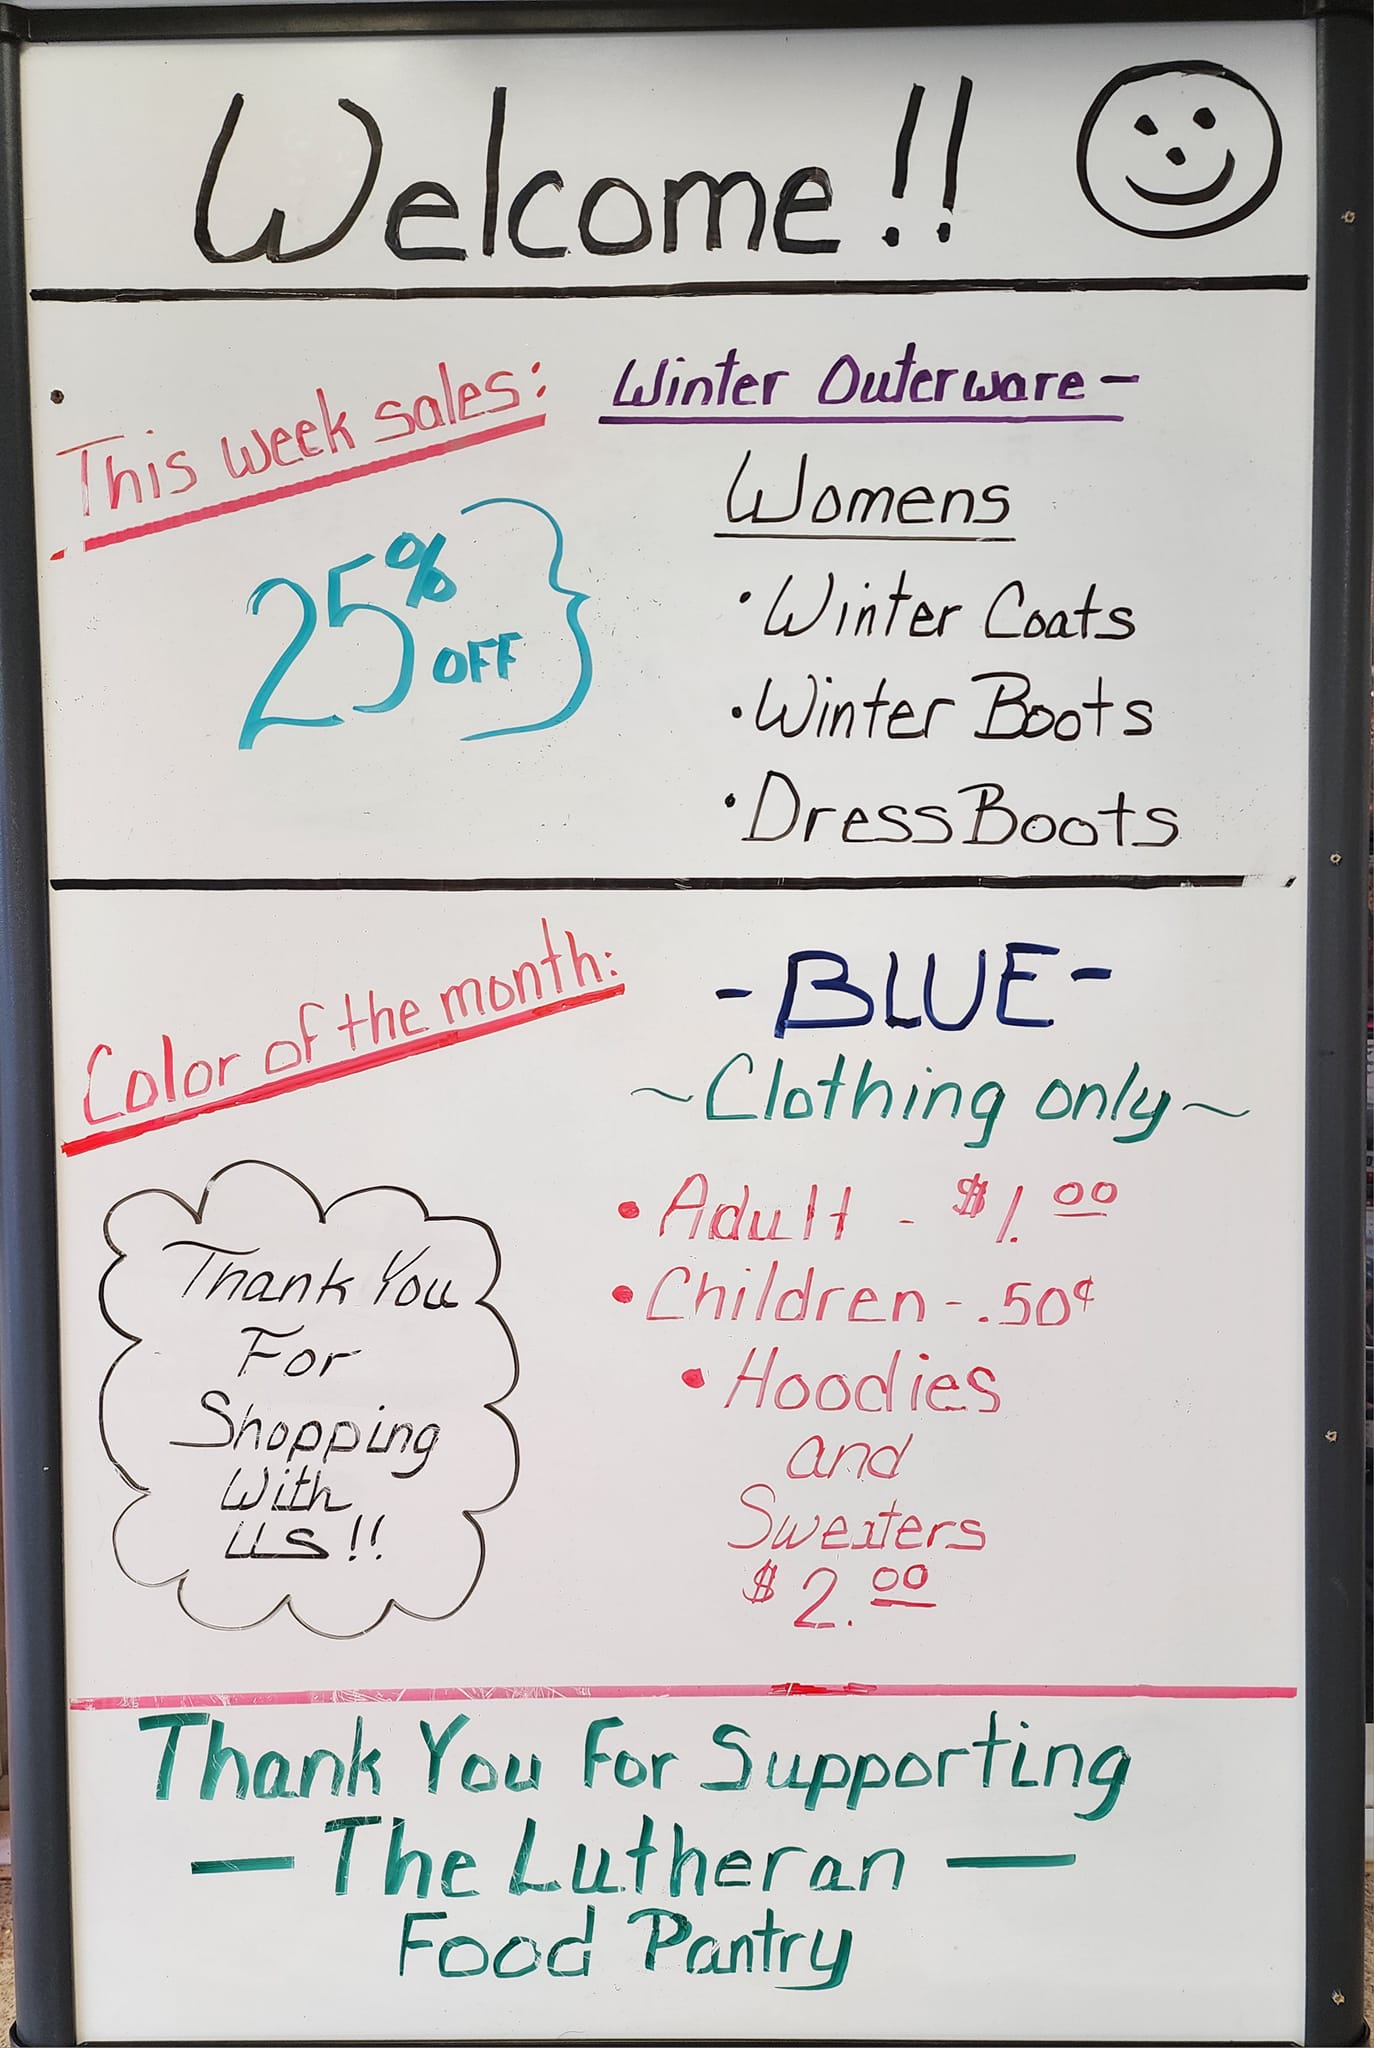 Welcome!!
This week sales:
25% OFF
Winter Outerware -
Womens
• Winter Coats
• Winter Boots
• Dress Boots
Color of the month:
- BLUE -
~ Clothing only ~
• Adult - $1.00
• Children - .50¢
• Hoodies
and
Sweaters
$2.00
Thank You
For
Shopping
With
us!!
Thank You For Supporting
— The Lutheran —
Food Pantry